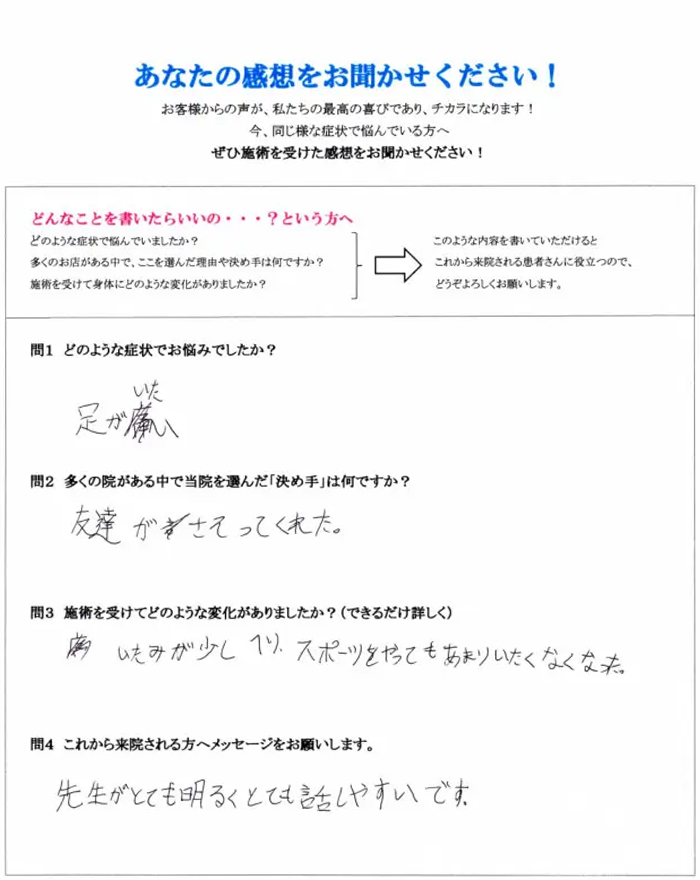 あなたの感想をお聞かせください！
お客様からの声が、私たちの最高の喜びであり、チカラになります！
今、同じ様な症状で悩んでいる方へ
ぜひ施術を受けた感想をお聞かせください！
どんなことを書いたらいいの・・・？という方へ
どのような症状で悩んでいましたか？
多くのお店がある中で、ここを選んだ理由や決め手は何ですか？
施術を受けて身体にどのような変化がありましたか？
このような内容を書いていただけると
これから来院される患者さんに役立つので、
どうぞよろしくお願いします。
問1 どのような症状でお悩みでしたか？
いた
足が痛い
問2 多くの院がある中で当院を選んだ「決め手」は何ですか？
友達がさそってくれた。
問3 施術を受けてどのような変化がありましたか？（できるだけ詳しく）
いたみが少しへり、スポーツをやってもあまりいたくなくなった。
問4 これから来院される方へメッセージをお願いします。
先生がとても明るくとても話しやすいです。